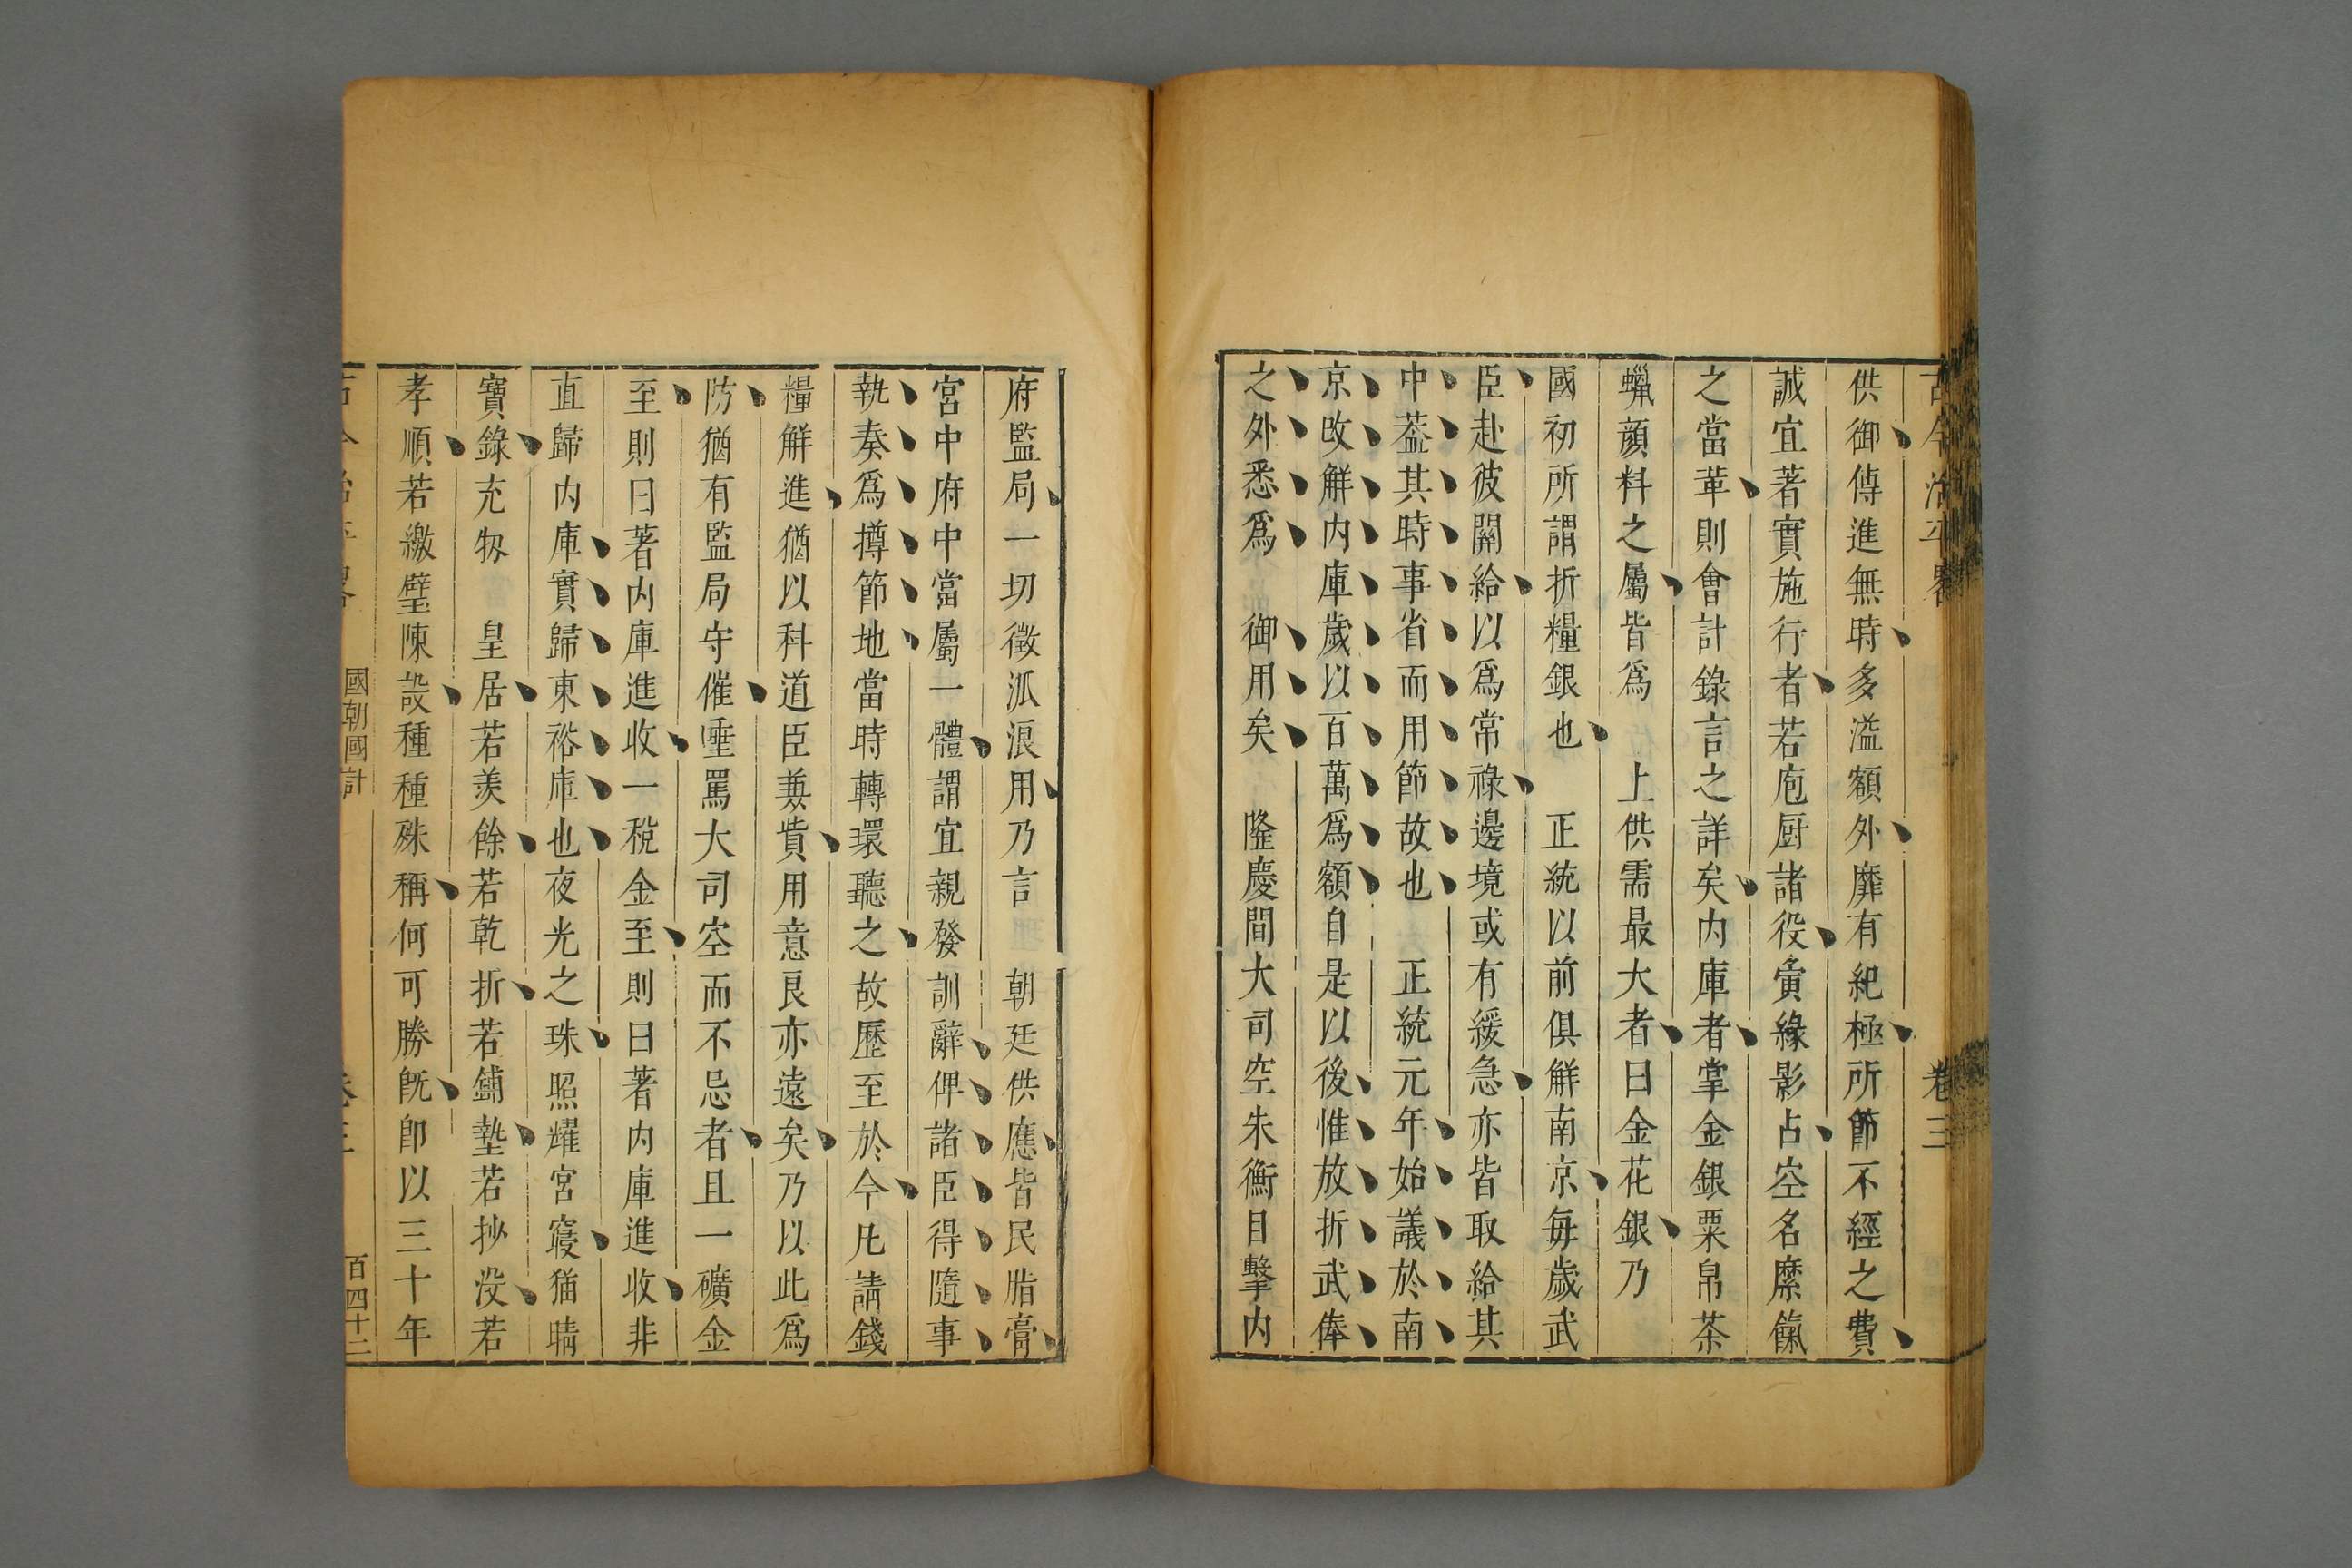 古今治平畧 卷三
供御傳進無時多溢額外靡有紀極所節不經之費
誠宜著實施行者若庖厨諸役寅緣影占空名縻餼
之當革則會計錄言之詳矣内庫者掌金銀粟帛茶
蠟顔料之屬皆爲 上供需最大者曰金花銀乃
國初所謂折糧銀也 正統以前俱觧南京每歲武
臣赴彼關給以爲常祿邊境或有緩急亦皆取給其
中葢其時事省而用節故也 正統元年始議於南
京改觧内庫歲以百萬爲額自是以後惟放折武俸
之外悉爲 御用矣 隆慶間大司空朱衡目擊内
府監局一切徵派浪用乃言 朝廷供應皆民脂膏
宮中府中當屬一體謂宜親發訓辭俾諸臣得隨事
執奏爲撙節地當時轉環聽之故歷至於今凡請錢
糧觧進猶以科道臣兼貲用意良亦遠矣乃以此爲
防猶有監局守催唾罵大司空而不忌者且一礦金
至則曰著内庫進收一稅金至則曰著内庫進收非
直歸内庫實歸東裕庫也夜光之珠照耀宮寢猫睛
寶錄充牣 皇居若羨餘若乾折若鋪墊若抄没若
孝順若繳璧陳設種種殊稱何可勝旣卽以三十年
國朝國計
百四十二